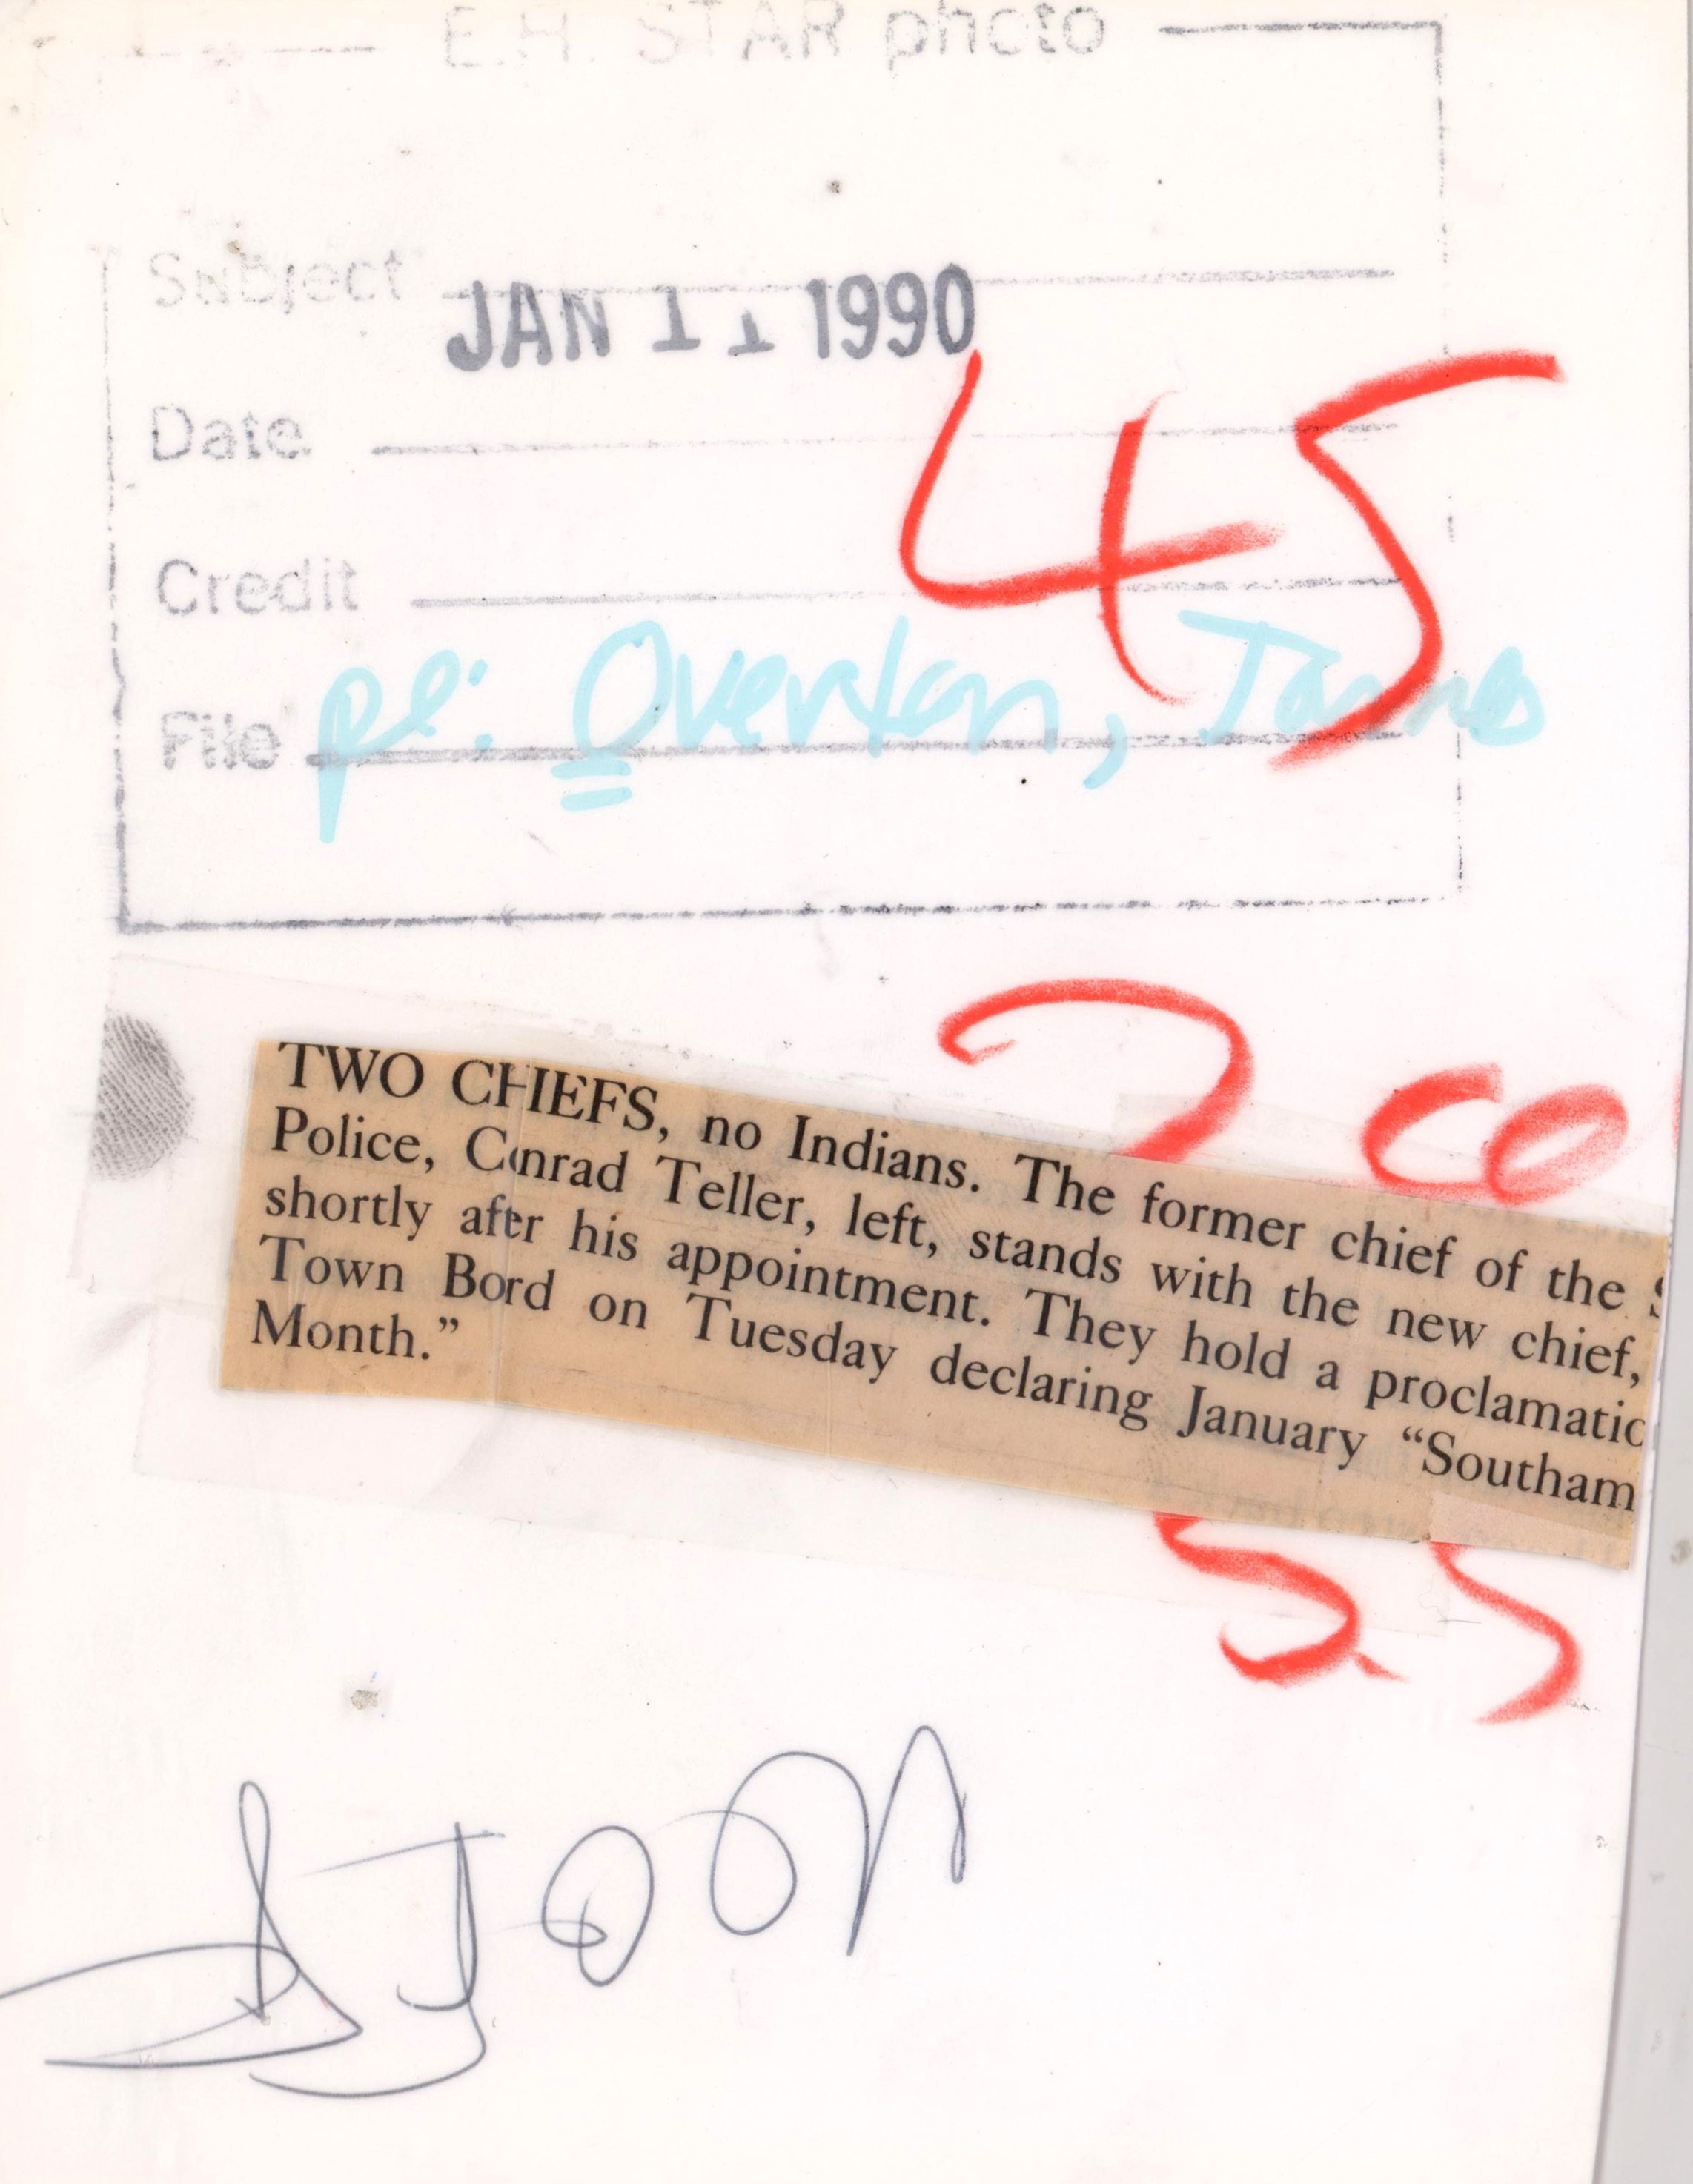 E.H. STAR photo
Subject
JAN 11 1990
Date
45
Credit
File pe: Overton, James
2 co
TWO CHIEFS, no Indians. The former chief of the S
Police, Conrad Teller, left, stands with the new chief,
shortly after his appointment. They hold a proclamatio
Town Bord on Tuesday declaring January “Southam
Month.”
55